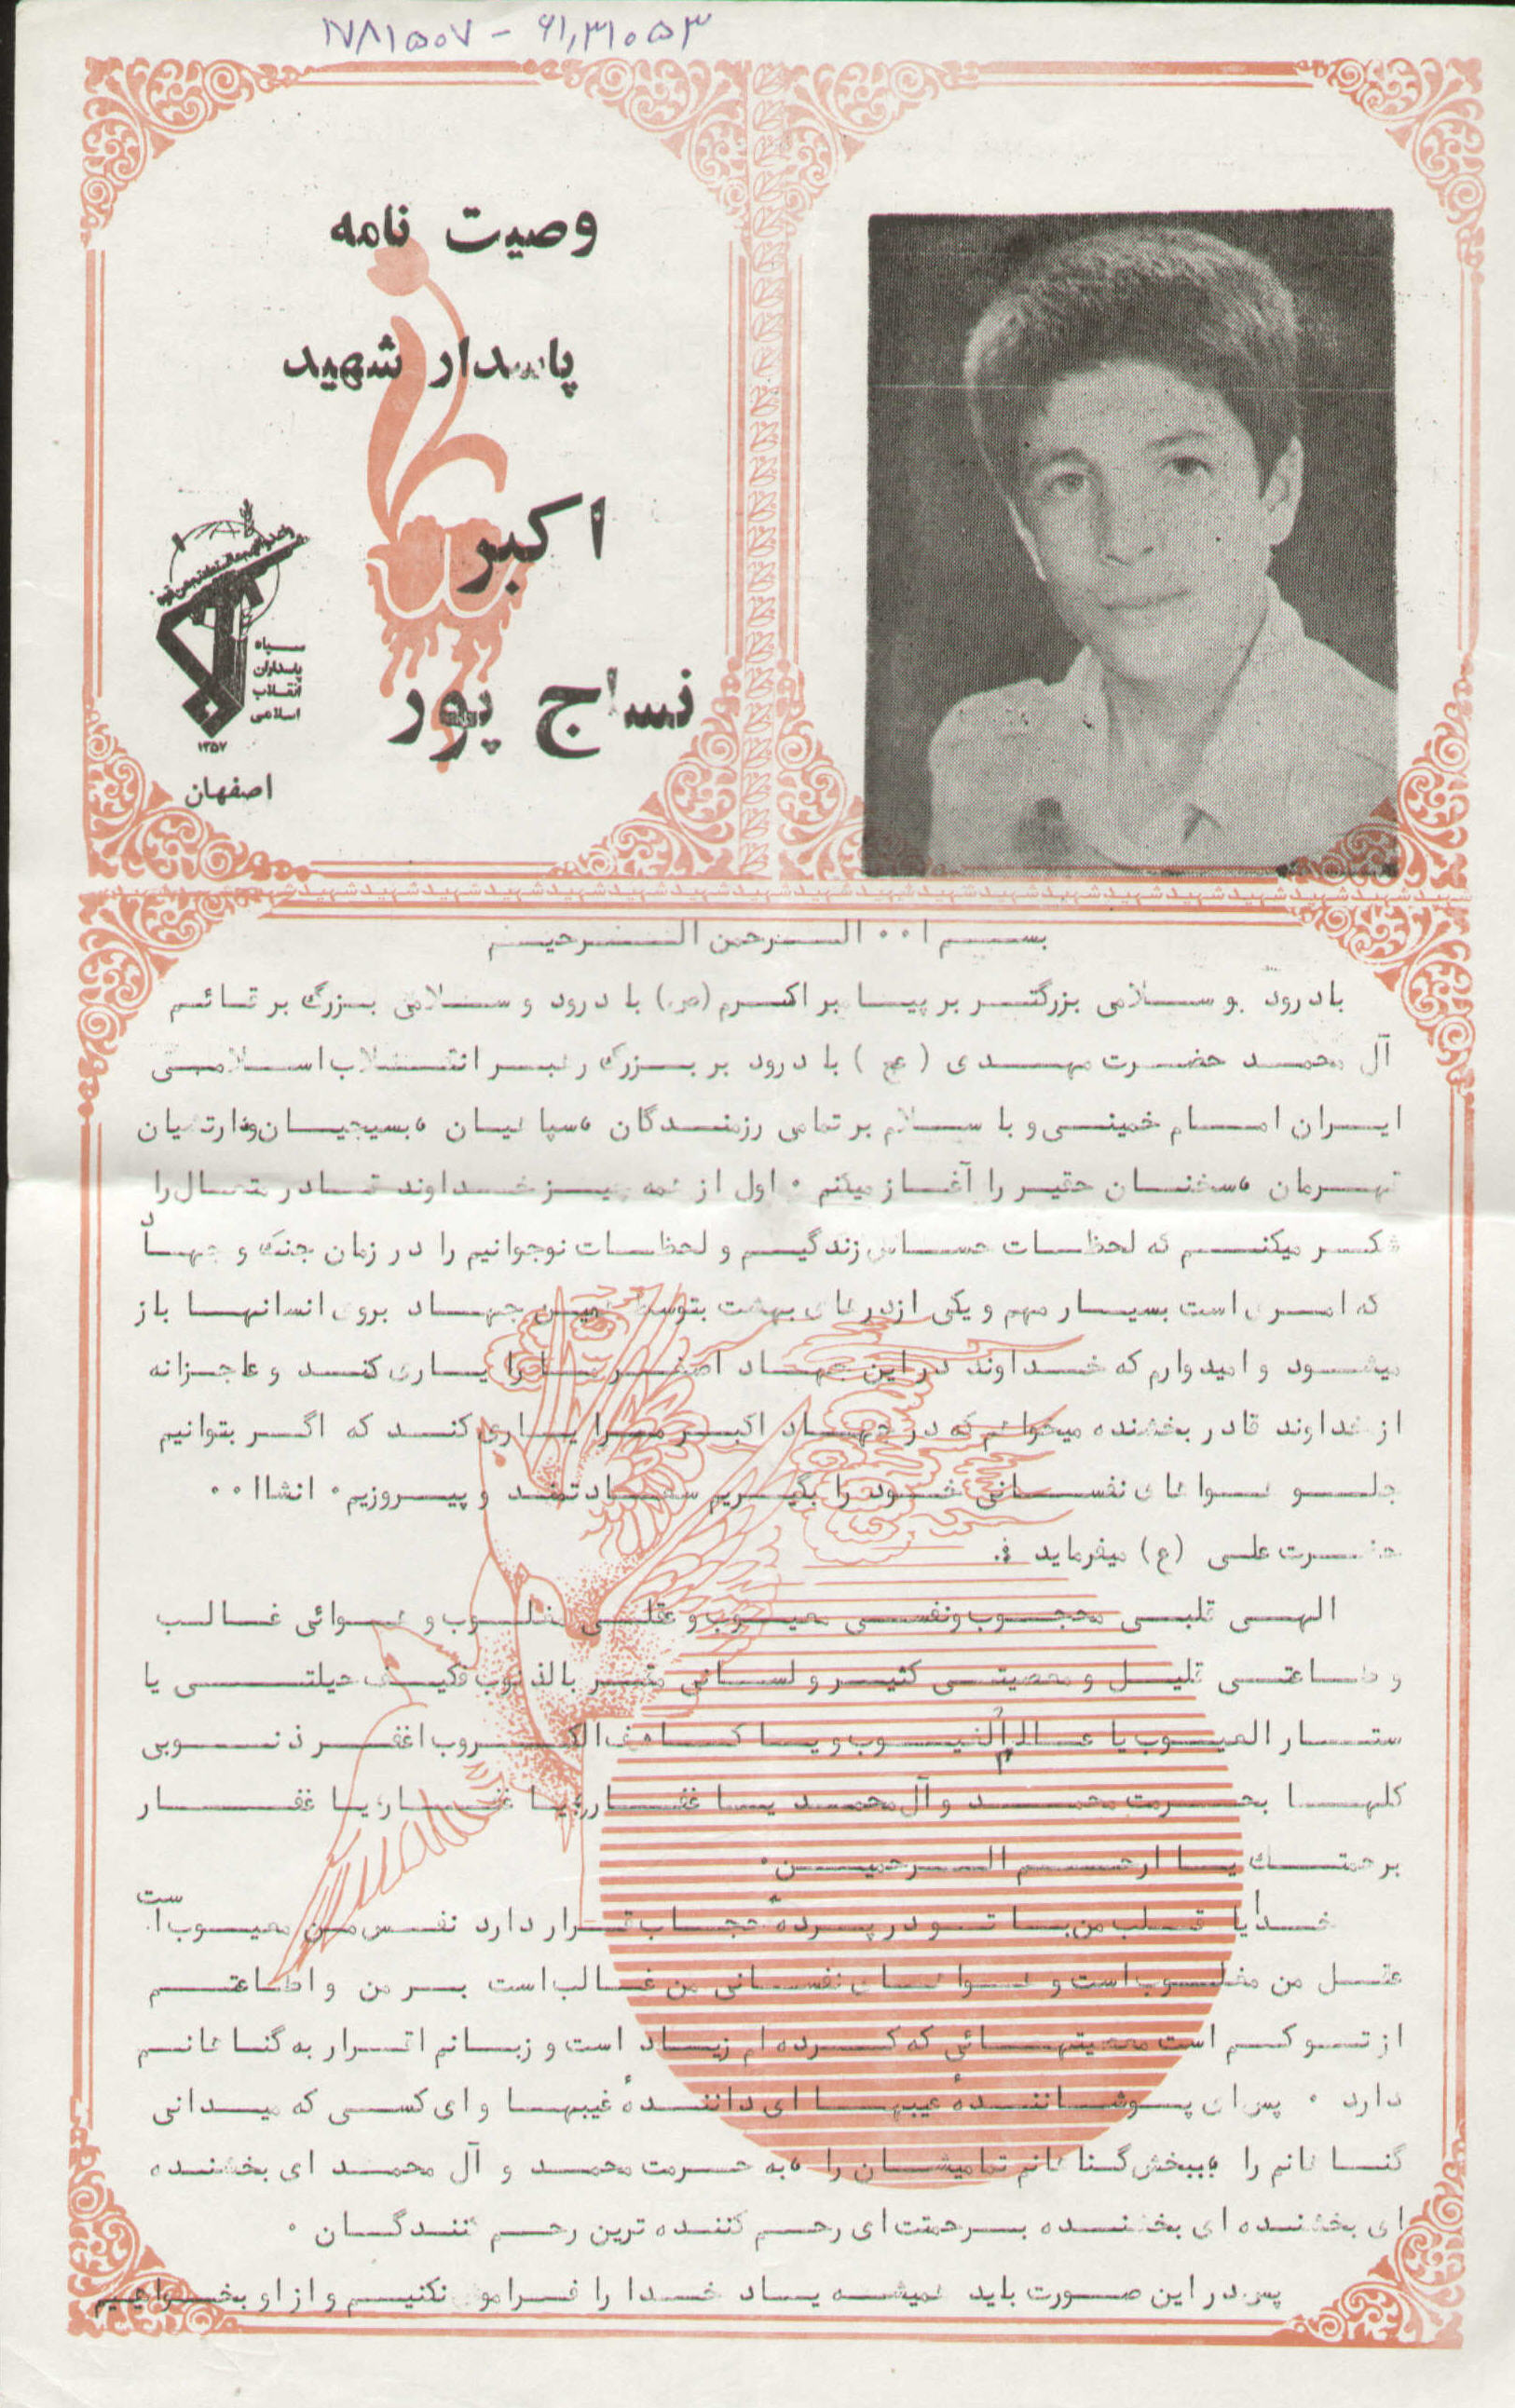 ۱۷۸۱۵۰۷ - ۶۱٫۳۱۰۵۳
وصیت نامه
پاسدار شهید
اکبر
نساج پور
سپاه
پاسداران
انقلاب
اسلامی
۱۳۵۷
اصفهان
بسم ا٠٠ الرحمن الرحیم
بادرود و سلامی بزرگتر بر پیامبر اکرم (ص) با درود و سلامی بزرگ بر قائم
آل محمد حضرت مهدی (عج) با درود بر بزرگ رهبر انقلاب اسلامی
ایران امام خمینی و با سلام بر تمامی رزمندگان ،سپاهیان ،بسیجیان وارتشیان
قهرمان ،سخنان حقیر را آغاز میکنم ٠ اول از همه چیز خداوند قادر متعال را
شکر میکنم که لحظات حساس زندگیم و لحظات نوجوانیم را در زمان جنگ و جهاد
که امری است بسیار مهم و یکی ازدرهای بهشت بتوسط همین جهاد بروی انسانها باز
میشود و امیدوارم که خداوند در این جهاد اصغر ما را یاری کند و عاجزانه
از خداوند قادر بخشنده میخواهم که در جهاد اکبر مرا یاری کند که اگر بتوانیم
جلو هواهای نفسانی خود را بگیریم سعادتمند و پیروزیم٠ انشاا٠٠
حضرت علی (ع) میفرماید :
الهی قلبی محجوب ونفسی معیوب و عقلی مغلوب و هوائی غالب
و طاعتی قلیل و معصیتی کثیر و لسانی مقر بالذنوب فکیف حیلتی یا
ستار العیوب یا عالم الغیوب و یا کاشف الکروب اغفر ذنوبی
کلها بحرمت محمد و آل محمد یا غفار، یا غفار، یا غفار
برحمتك یا ارحم الرحمین٠
خدایا قلب من با تو در پردهٔ حجاب قرار دارد نفس من معیوب است
عقل من مغلوب است و هواهای نفسانی من غالب است بر من و اطاعتم
از تو کم است معصیتهائی که کرده ام زیاد است و زبانم اقرار به گناهانم
دارد ٠ پس ای پوشانندهٔ عیبها ای دانندهٔ غیبها و ای کسی که میدانی
گناهانم را ،ببخش گناهانم تمامیشان را ،به حرمت محمد و آل محمد ای بخشنده
ای بخشنده ای بخشنده برحمتت ای رحم کننده ترین رحم کنندگان ٠
پس در این صورت باید همیشه یاد خدا را فراموش نکنیم و از او بخواهیم